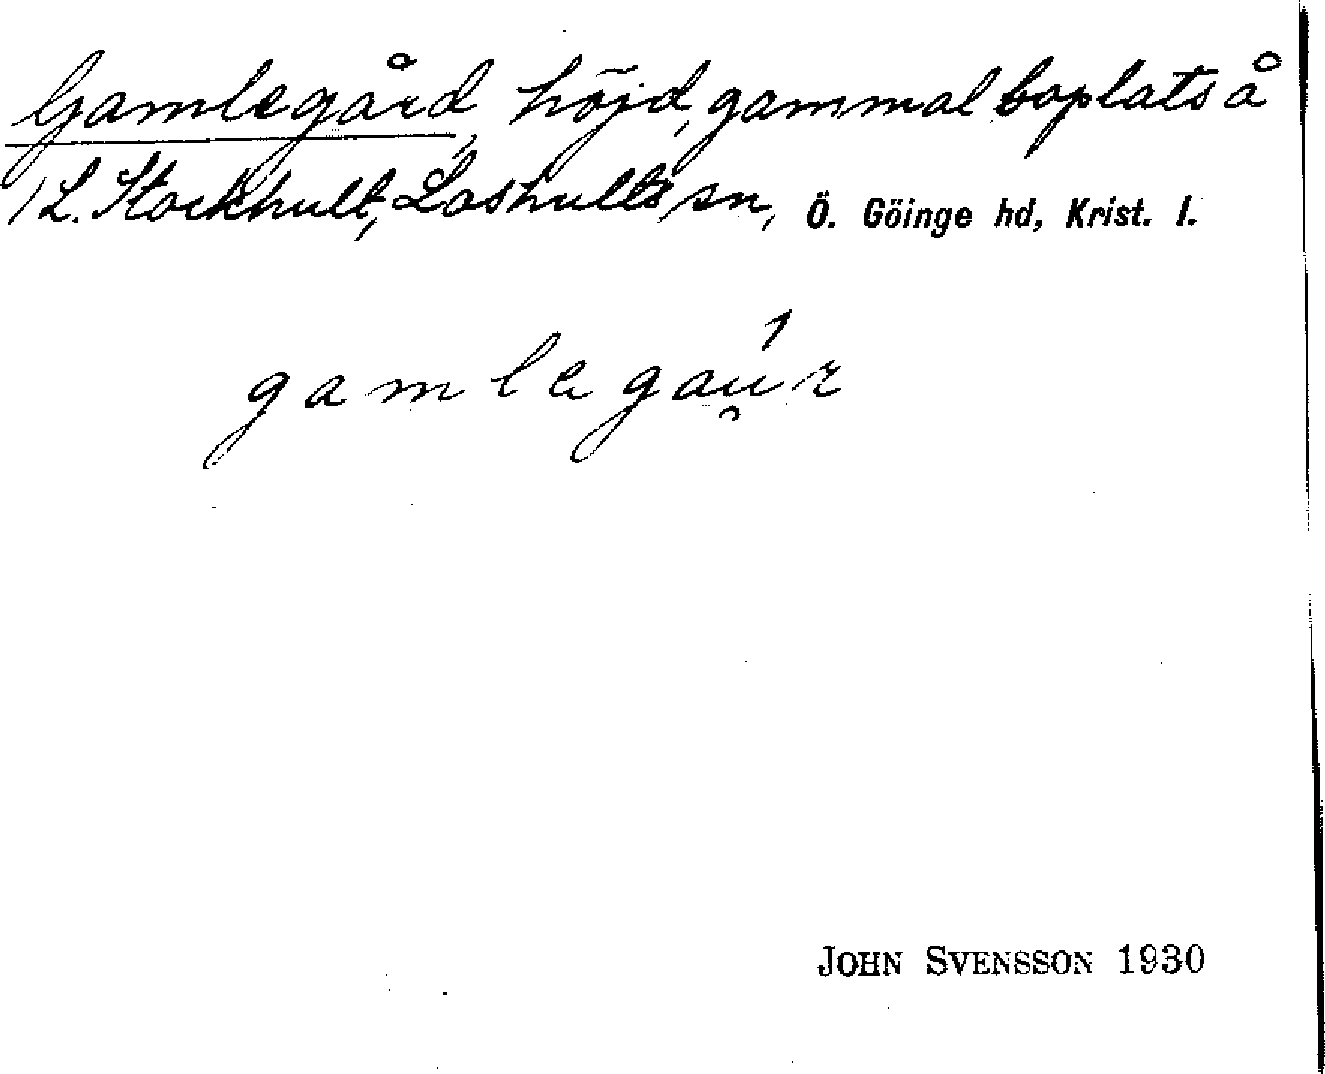 Gamlegård, höjd, gammal boplats å
L. Stockhult, Loshults sn, Ö. Göinge hd, Krist. l.
JOHN SVENSSON 1930